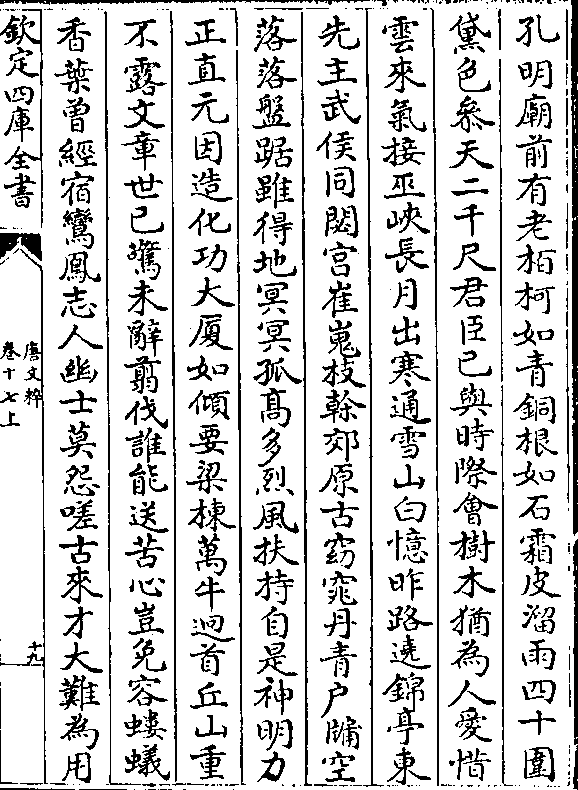 孔明廟前有老柏柯如青銅根如石霜皮溜雨四十圍
黛色叅天二千尺君臣已與時際會樹木猶為人愛惜
雲來氣接巫峽長月出寒通雪山白憶昨路遶錦亭東
先主武侯同閟宮崔嵬枝幹郊原古窈窕丹青户牖空
落落盤踞雖得地冥冥孤髙多烈風扶持自是神明力
正直元因造化功大厦如傾要梁棟萬牛迴首丘山重
不露文章世已驚未辭翦伐誰能送苦心豈免容螻蟻
香葉曾經宿鸞鳳志人幽士莫怨嗟古來才大難為用
欽定四庫全書
唐文粹
卷十七上
十九